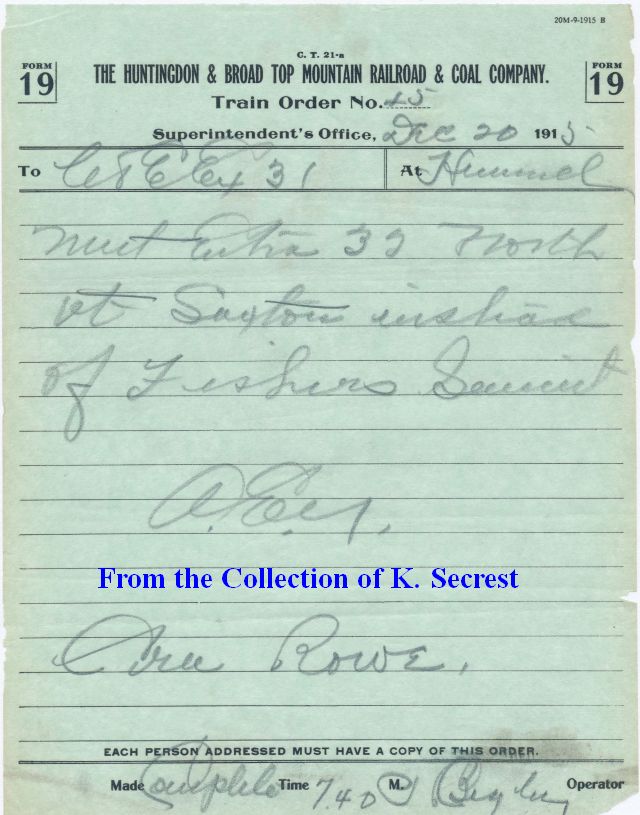 20M-9-1915 B
C. T. 21-a
FORM 19 THE HUNTINGDON & BROAD TOP MOUNTAIN RAILROAD & COAL COMPANY. FORM 19
Train Order No. 45
Superintendent's Office, Dec 20 1915
To C&E Ex 31 At Hummel
Meet Extra 32 North
at Saxton instead
of Fishers Summit
A.E.Y.
From the Collection of K. Secrest
Rowe.
EACH PERSON ADDRESSED MUST HAVE A COPY OF THIS ORDER.
Made Complete Time 740 P M. Operator